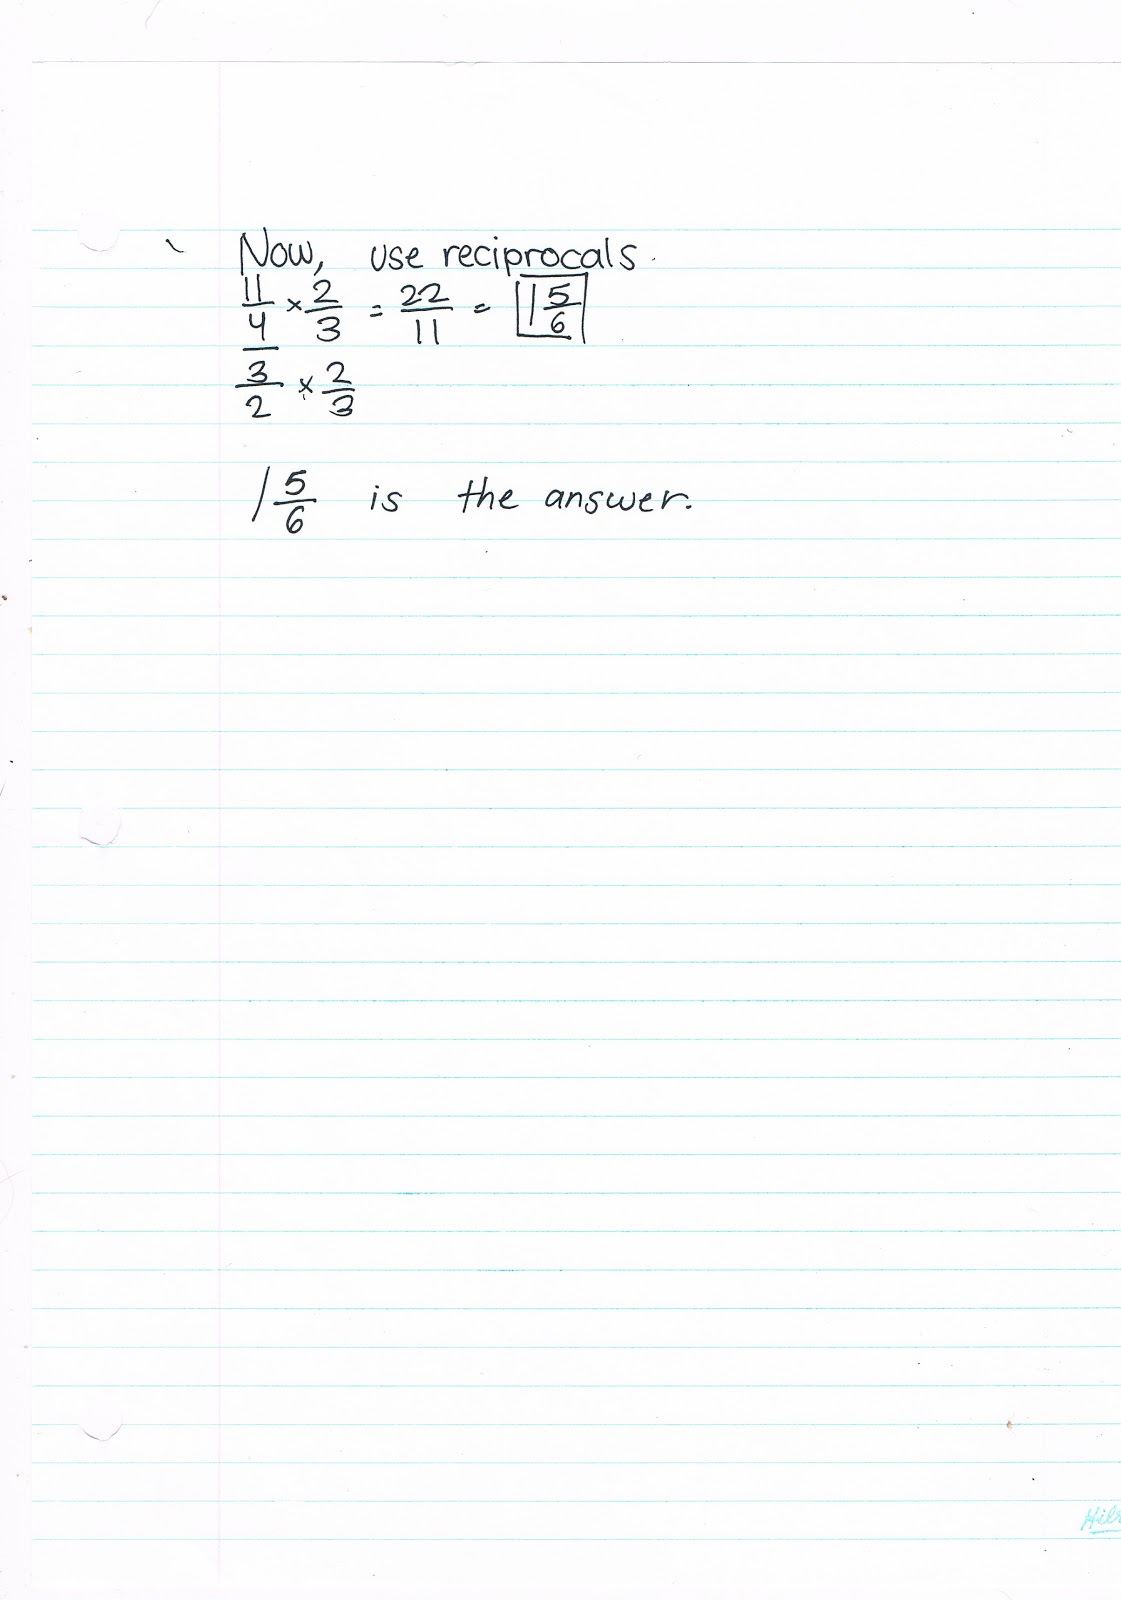 Now, use reciprocals.
11/4 × 2/3 = 22/11 = 1 5/6
3/2 × 2/3
1 5/6 is the answer.